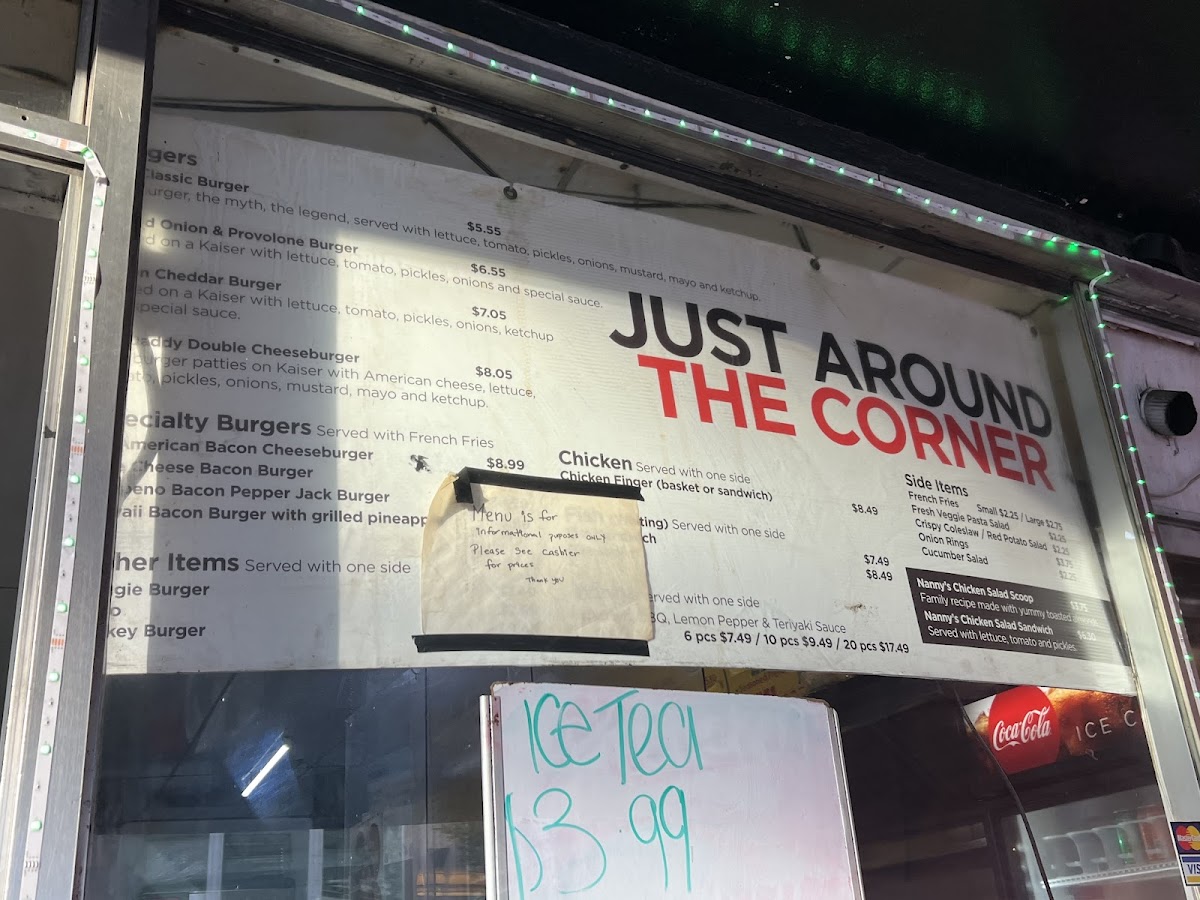 gers
Classic Burger
urger, the myth, the legend, served with lettuce, tomato, pickles, onions, mustard, mayo and ketchup.
$5.55
d Onion & Provolone Burger
d on a Kaiser with lettuce, tomato, pickles, onions and special sauce.
$6.55
n Cheddar Burger
ed on a Kaiser with lettuce, tomato, pickles, onions, ketchup
pecial sauce.
$7.05
addy Double Cheeseburger
burger patties on Kaiser with American cheese, lettuce,
ato, pickles, onions, mustard, mayo and ketchup.
$8.05
ecialty Burgers Served with French Fries
American Bacon Cheeseburger
$8.99
Cheese Bacon Burger
eno Bacon Pepper Jack Burger
aii Bacon Burger with grilled pineapp
her Items Served with one side
gie Burger
o
key Burger
JUST AROUND
THE CORNER
Menu is for
informational puposes only
Please see cashier
for prices
Thank you
Chicken Served with one side
Chicken Finger (basket or sandwich)
$8.49
ting) Served with one side
ch
$7.49
$8.49
erved with one side
BQ, Lemon Pepper & Teriyaki Sauce
6 pcs $7.49 / 10 pcs $9.49 / 20 pcs $17.49
Side Items
French Fries Small $2.25 / Large $2.75
Fresh Veggie Pasta Salad $2.25
Crispy Coleslaw / Red Potato Salad $2.25
Onion Rings $3.75
Cucumber Salad $2.25
Nanny's Chicken Salad Scoop $3.75
Family recipe made with yummy toasted
Nanny's Chicken Salad Sandwich $6.30
Served with lettuce, tomato and pickles.
ICE Tea
$3.99
Coca-Cola
ICE C
MasterCard
VIS